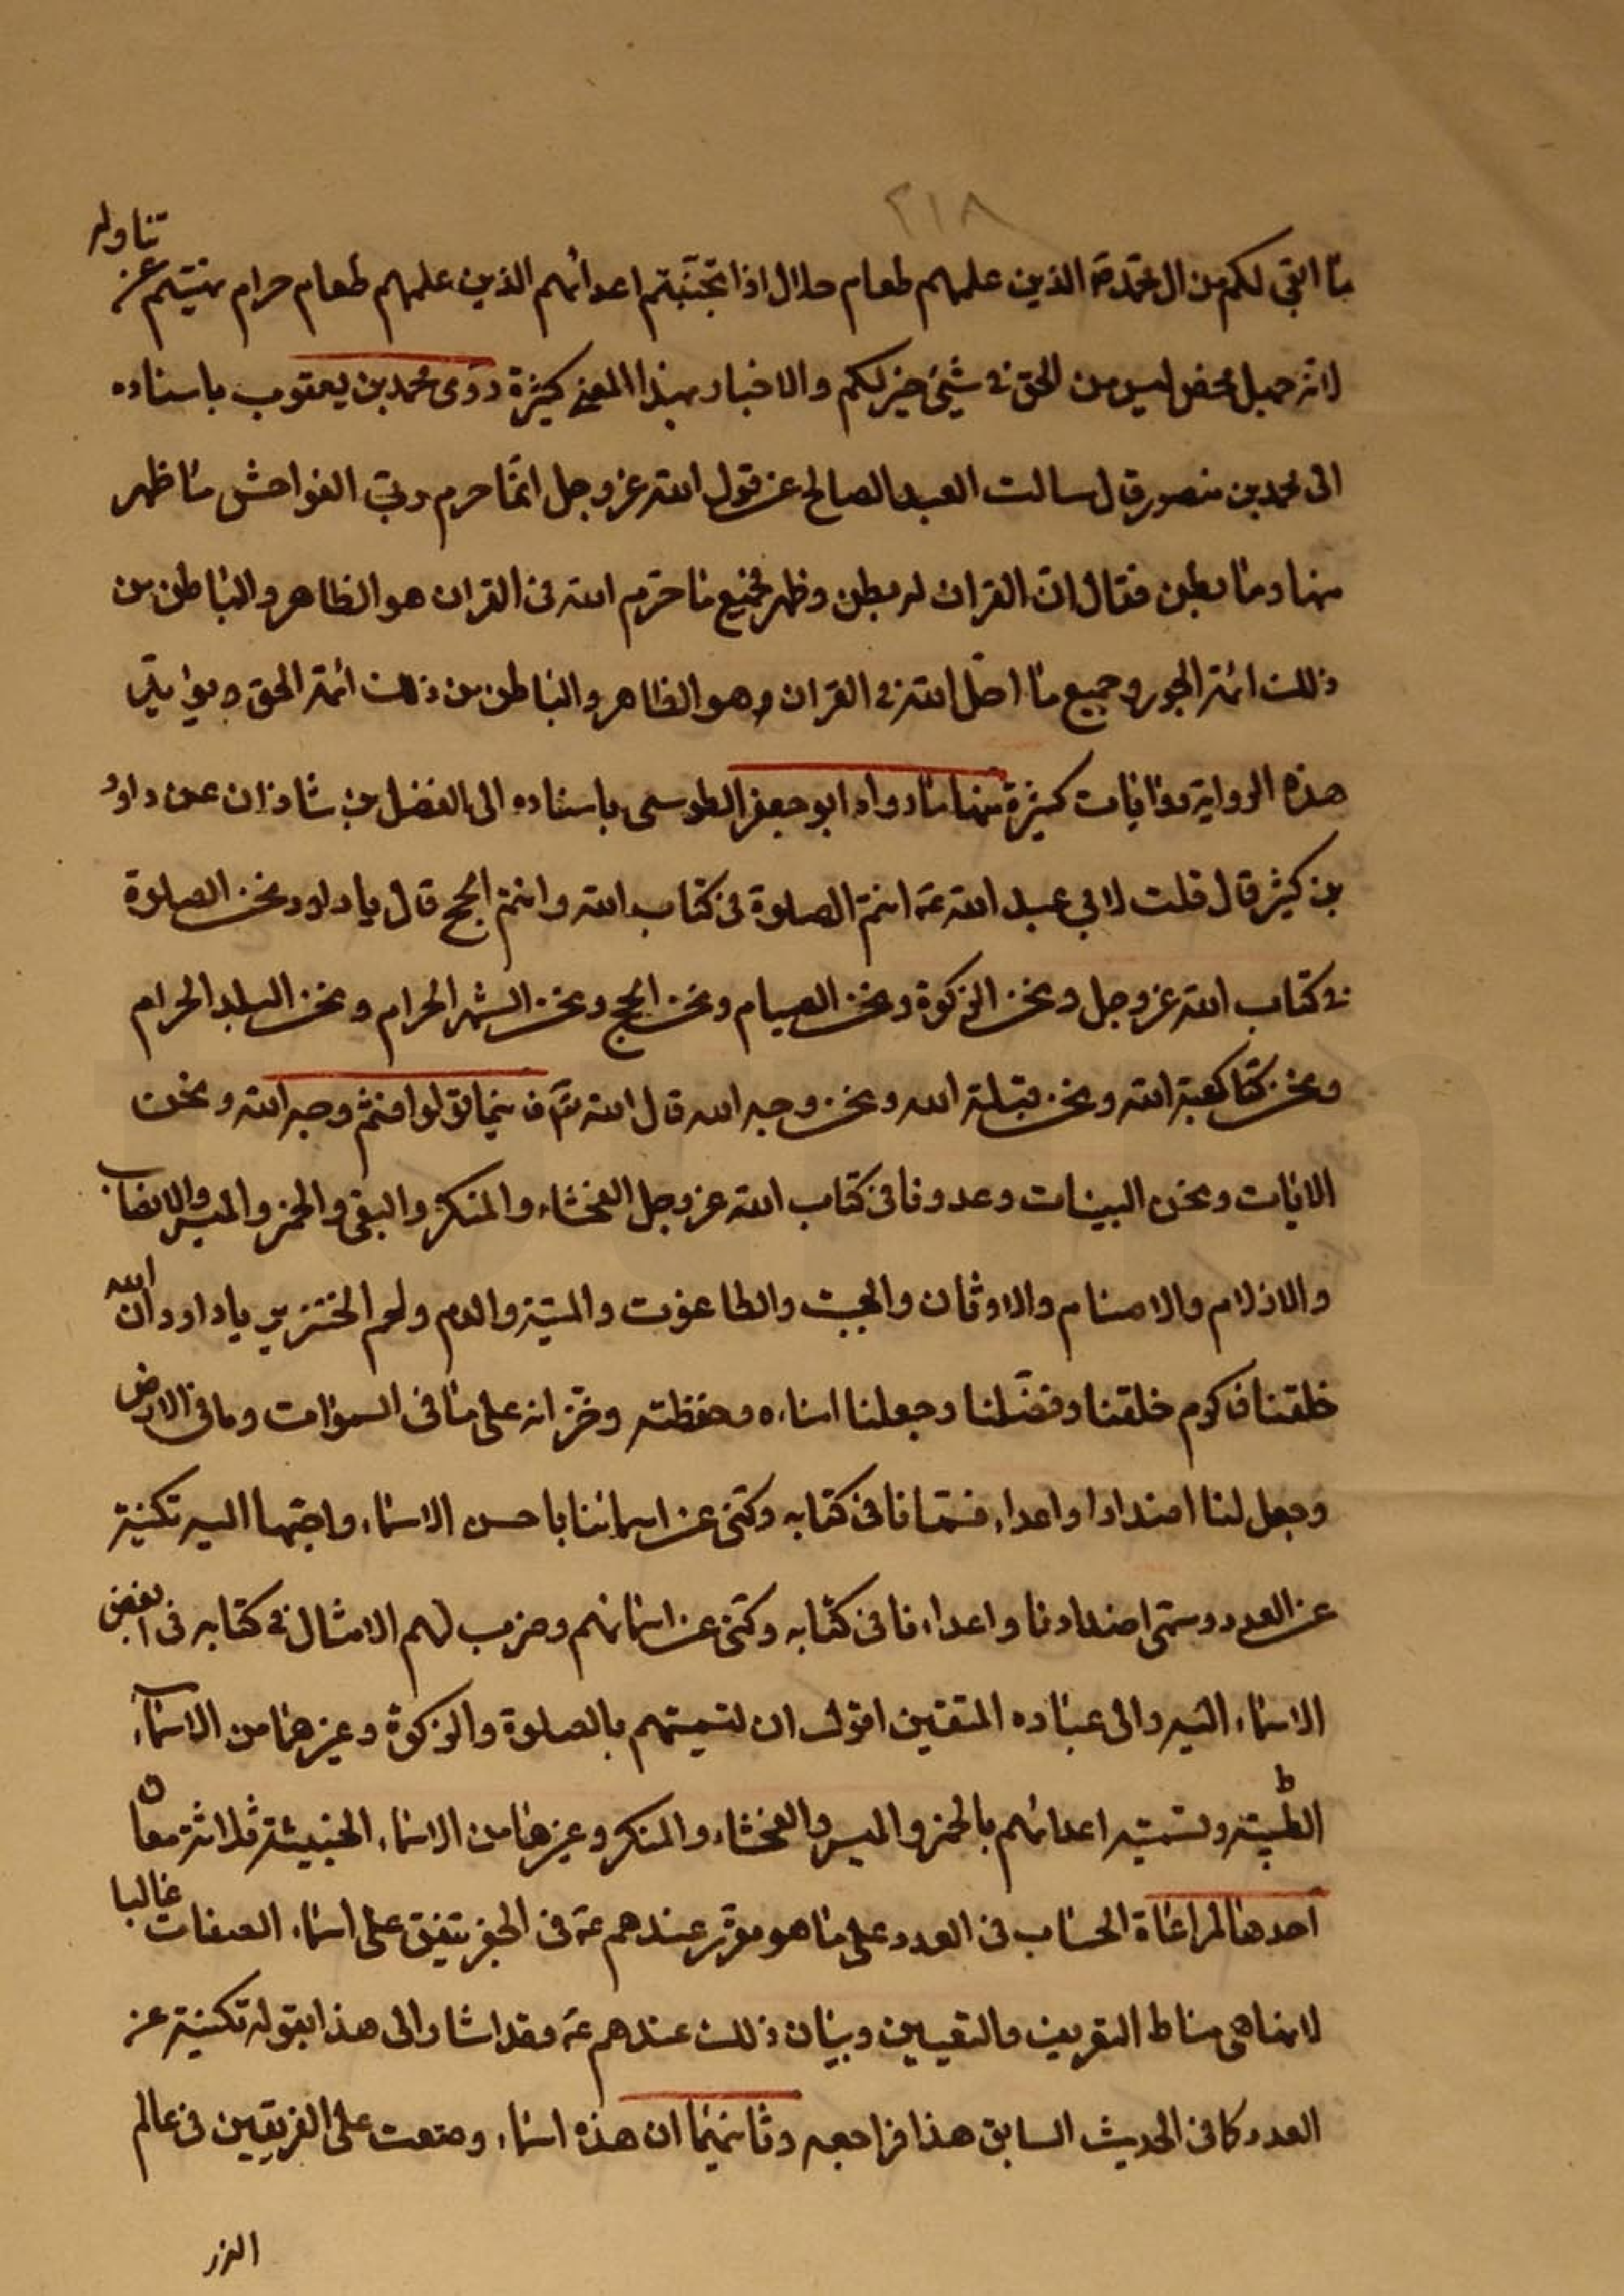 ٢١٨
مّا ابقى لكم من ال محمّد ص الذين علمهم طعام حلال اذا تجنّبتم اعدائهم الذين علمهم طعام حرام نهيتم عن تناوله
لانه جهل محض ليس من الحق فى شيئ خير لكم والاخبار بهذا المعنى كثيرة روى محمد بن يعقوب باسناده
الى محمد بن منصور قال سالت العبد الصالح عن قول الله عز وجل انّما حرم ربّى الفواحش ما ظهر
منها وما بطن فقال انّ القران له بطن وظهر فجميع ما حرّم الله فى القران هو الظاهر والباطن من
ذلك ائمة الجور وجميع ما احلّ الله فى القران وهو الظاهر والباطن من ذلك ائمة الحق ويؤيّد
هذه الرواية روايات كثيرة منها ما رواه ابو جعفر الطوسى باسناده الى الفضل بن شاذان عن داود
بن كثير قال قلت لابي عبد الله ع انتم الصلوة فى كتاب الله وانتم الحج قال يا داود نحن الصلوة
فى كتاب الله عز وجل ونحن الزكوة ونحن الصيام ونحن الحج ونحن الشهر الحرام ونحن البلد الحرام
ونحن كعبة الله ونحن قبلة الله ونحن وجه الله قال الله تع فاينما تولوا فثم وجه الله ونحن
الايات ونحن البينات وعدونا فى كتاب الله عز وجل الفحشاء والمنكر والبغى والخمر والميسر والانصاب
والازلام والاصنام والاوثان والجبت والطاغوت والميتة والدم ولحم الخنزير يا داود ان الله
خلقنا فاكرم خلقنا وفضّلنا وجعلنا امناءه وحفظته وخزّانه على ما فى السموات وما فى الارض
وجعل لنا اضدادا واعداء فسمّانا فى كتابه وكنّى عن اسمائنا باحسن الاسماء واحبها اليه تكنية
عن العدد وسمّى اضدادنا واعداءنا فى كتابه وكنّى عن اسمائهم وضرب لهم الامثال فى كتابه فى ابغض
الاسماء اليه والى عباده المتقين اقول ان لتسميتهم بالصلوة والزكوة وغيرهما من الاسماء
الطيّبة وتسمية اعدائهم بالخمر والميسر والفحشاء والمنكر وغيرها من الاسماء الخبيثة ثلاثة معان
احدها لمراعاة الحساب فى العدد على ما هو مؤثر عندهم ع فى الجفر يتفق على اسماء الصفات غالبا
لانها هى مناط التعريف والتعيين وبيان ذلك عندهم ع وقد اشار الى هذا بقوله تكنية عن
العدد كما فى الحديث السابق هذا فراجعه وثانيهما ان هذه اسماء وضعت على الفريقين فى عالم
الذر